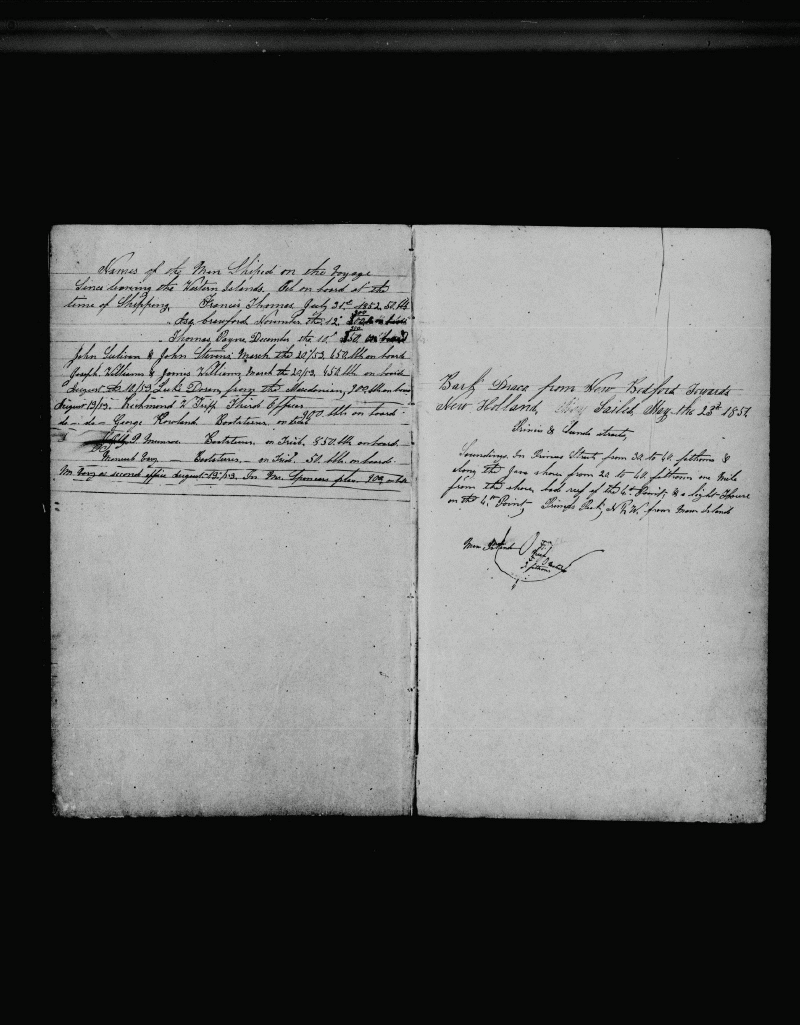 Names of the Men Shiped on the Voyage
Since leaving the Western Islands. Oil on board at the
time of Shipping Francis Thomas July 31st 1852, 50 bbls
" Asa Crawford November the 12.
" Thomas Payne, December the 10. on board
John Sulivan & John Stevens March the 20/53, 650 bbls on board
Joseph Williams & James Williams, March the 20/53, 650 bbls on board
August the 10/53, Luke Doran, from the 900 bbls on board
August 13/53. Richmond H. Tripp Third Officer
do - do - George Rowland Boatsteerer. 900 bbls on board -
P. Munroe Boatsteerer - on Trial, 850 bbls on board -
Manuel - Boatsteerer - on Trial. 50. bbls. on board.
Mr. as second officer August 13th/53. In Mr. Spencers place 900
Bark Draco from New Bedford Towards
New Holland, Sailed May the 23d 185
& Sunda straits,
Soundings In Princes Strait from 30 to 40 fathoms &
along the Java shore from 20 to 40 fathoms one Mile
from the shore, bad reef of the 4th Point, & a light House
on the 4th Point Friars Rock, N by W. from Mew Island
Mew Island